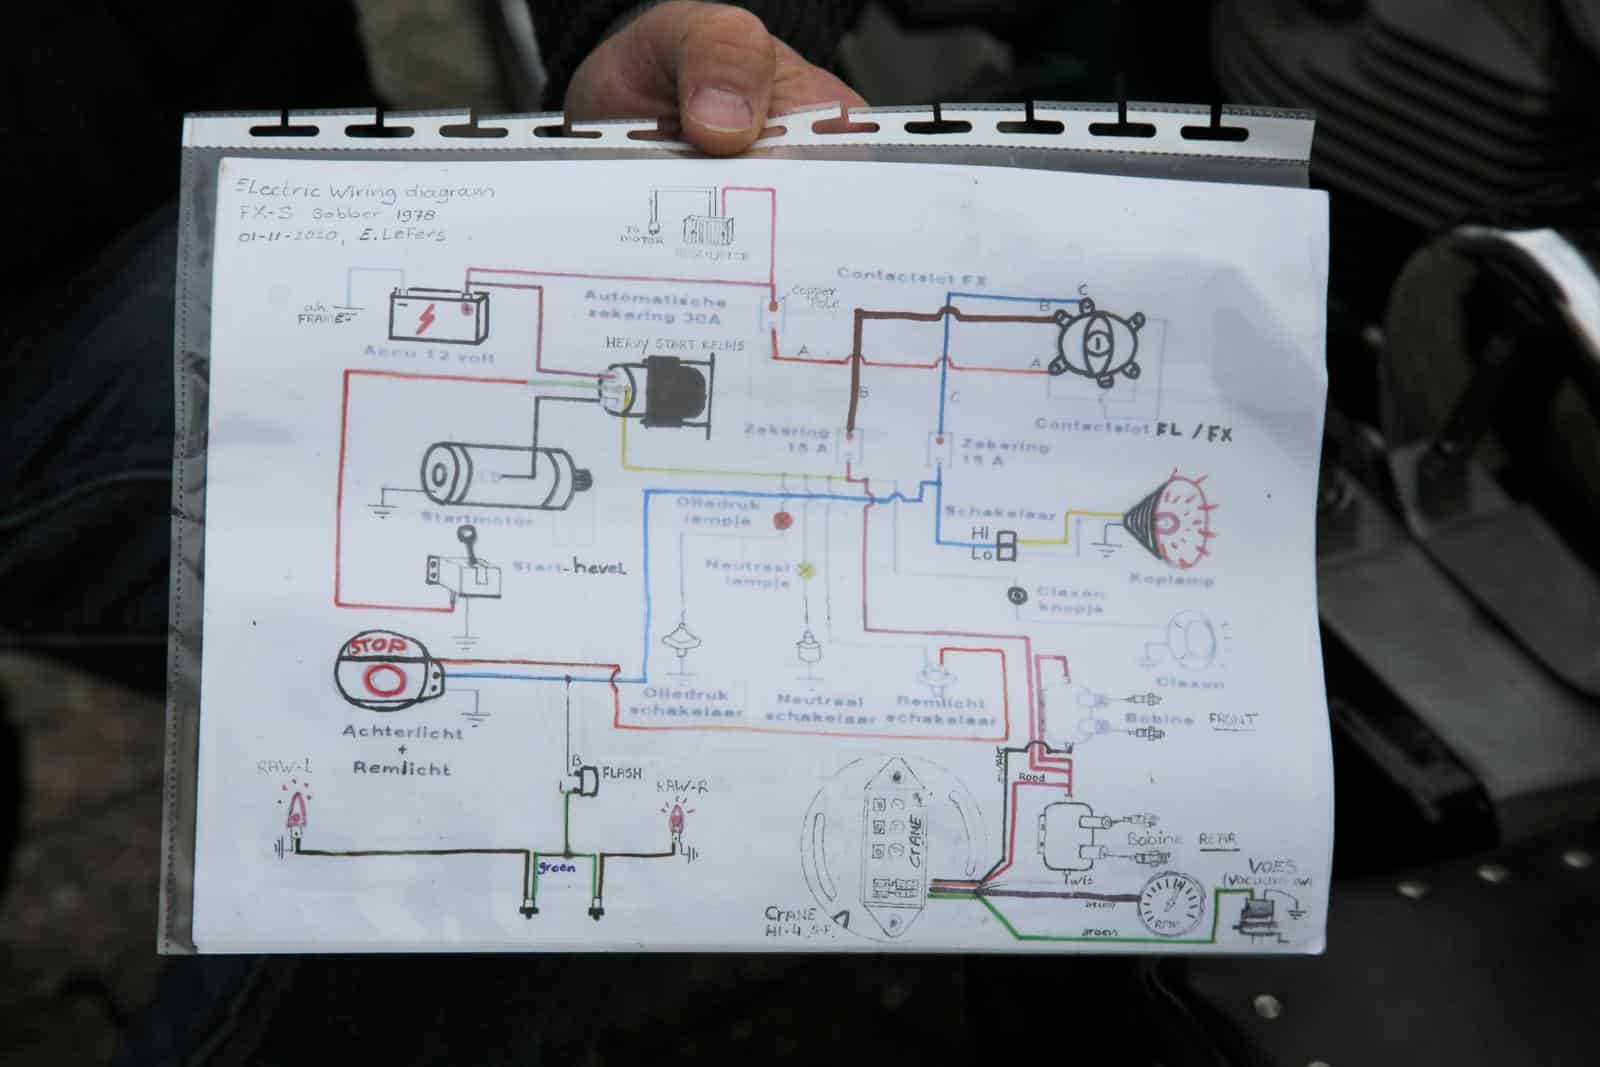 Electric Wiring diagram
FX-S Bobber 1978
01-11-2020, E.Lefers
to
MOTOR
Contactslot FX
Copper
Automatische
zekering 30A
a.h
FRAME
Accu 12 volt
HEAVY START RELAIS
A
B
C
B
A
B
C
Contactslot FL/FX
Zekering
15 A
Zekering
15 A
Startmotor
Oliedruk
lampje
Schakelaar
HI
Lo
Koplamp
Start-hevel
Neutraal
lampje
Claxon
knopje
Claxon
STOP
Achterlicht
+
Remlicht
Oliedruk
schakelaar
Neutraal
schakelaar
Remlicht
schakelaar
Bobine FRONT
RAW-L
B
L
FLASH
RAW-R
groen
Rood
CRANE
Bobine REAR
Twit
CRANE
HI-4 S.F.
RPM
groen
VOES
(Vacuum sw)